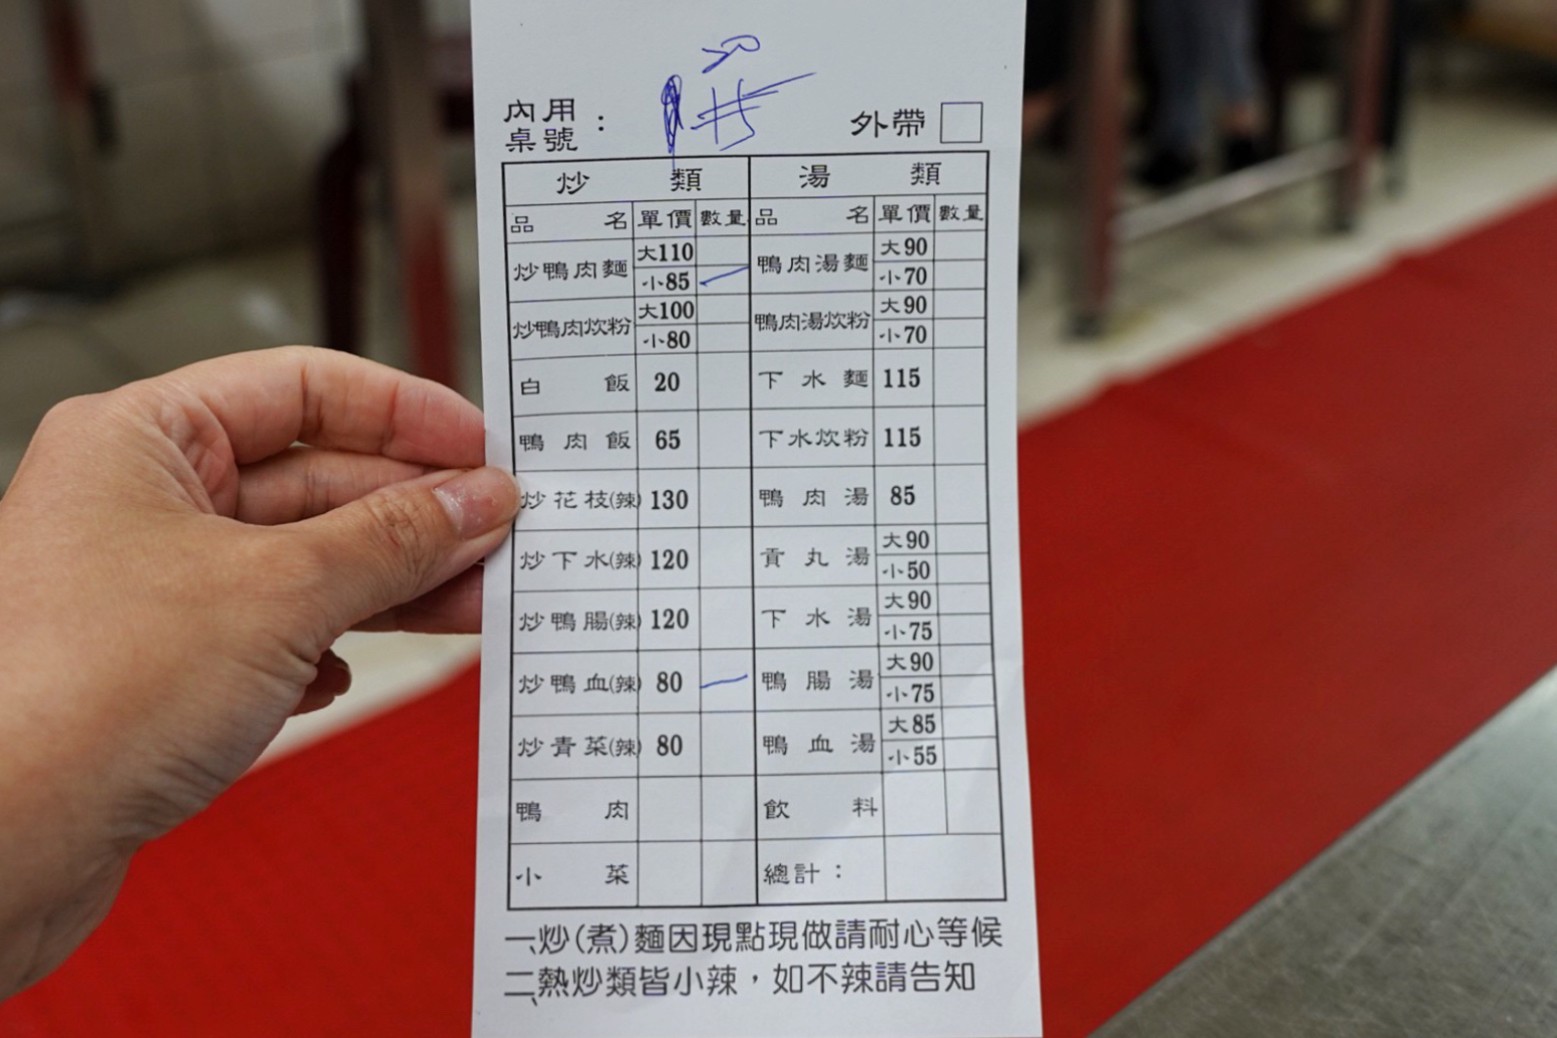 內用
桌號：
外帶
炒類 湯類
品名 單價 數量 品名 單價 數量
炒鴨肉麵 大110 鴨肉湯麵 大90
小85 小70
炒鴨肉炊粉 大100 鴨肉湯炊粉 大90
小80 小70
白飯 20 下水麵 115
鴨肉飯 65 下水炊粉 115
炒花枝(辣) 130 鴨肉湯 85
炒下水(辣) 120 貢丸湯 大90
小50
炒鴨腸(辣) 120 下水湯 大90
小75
炒鴨血(辣) 80 鴨腸湯 大90
小75
炒青菜(辣) 80 鴨血湯 大85
小55
鴨肉 飲料
小菜 總計：
一、炒(煮)麵因現點現做請耐心等候
二、熱炒類皆小辣，如不辣請告知